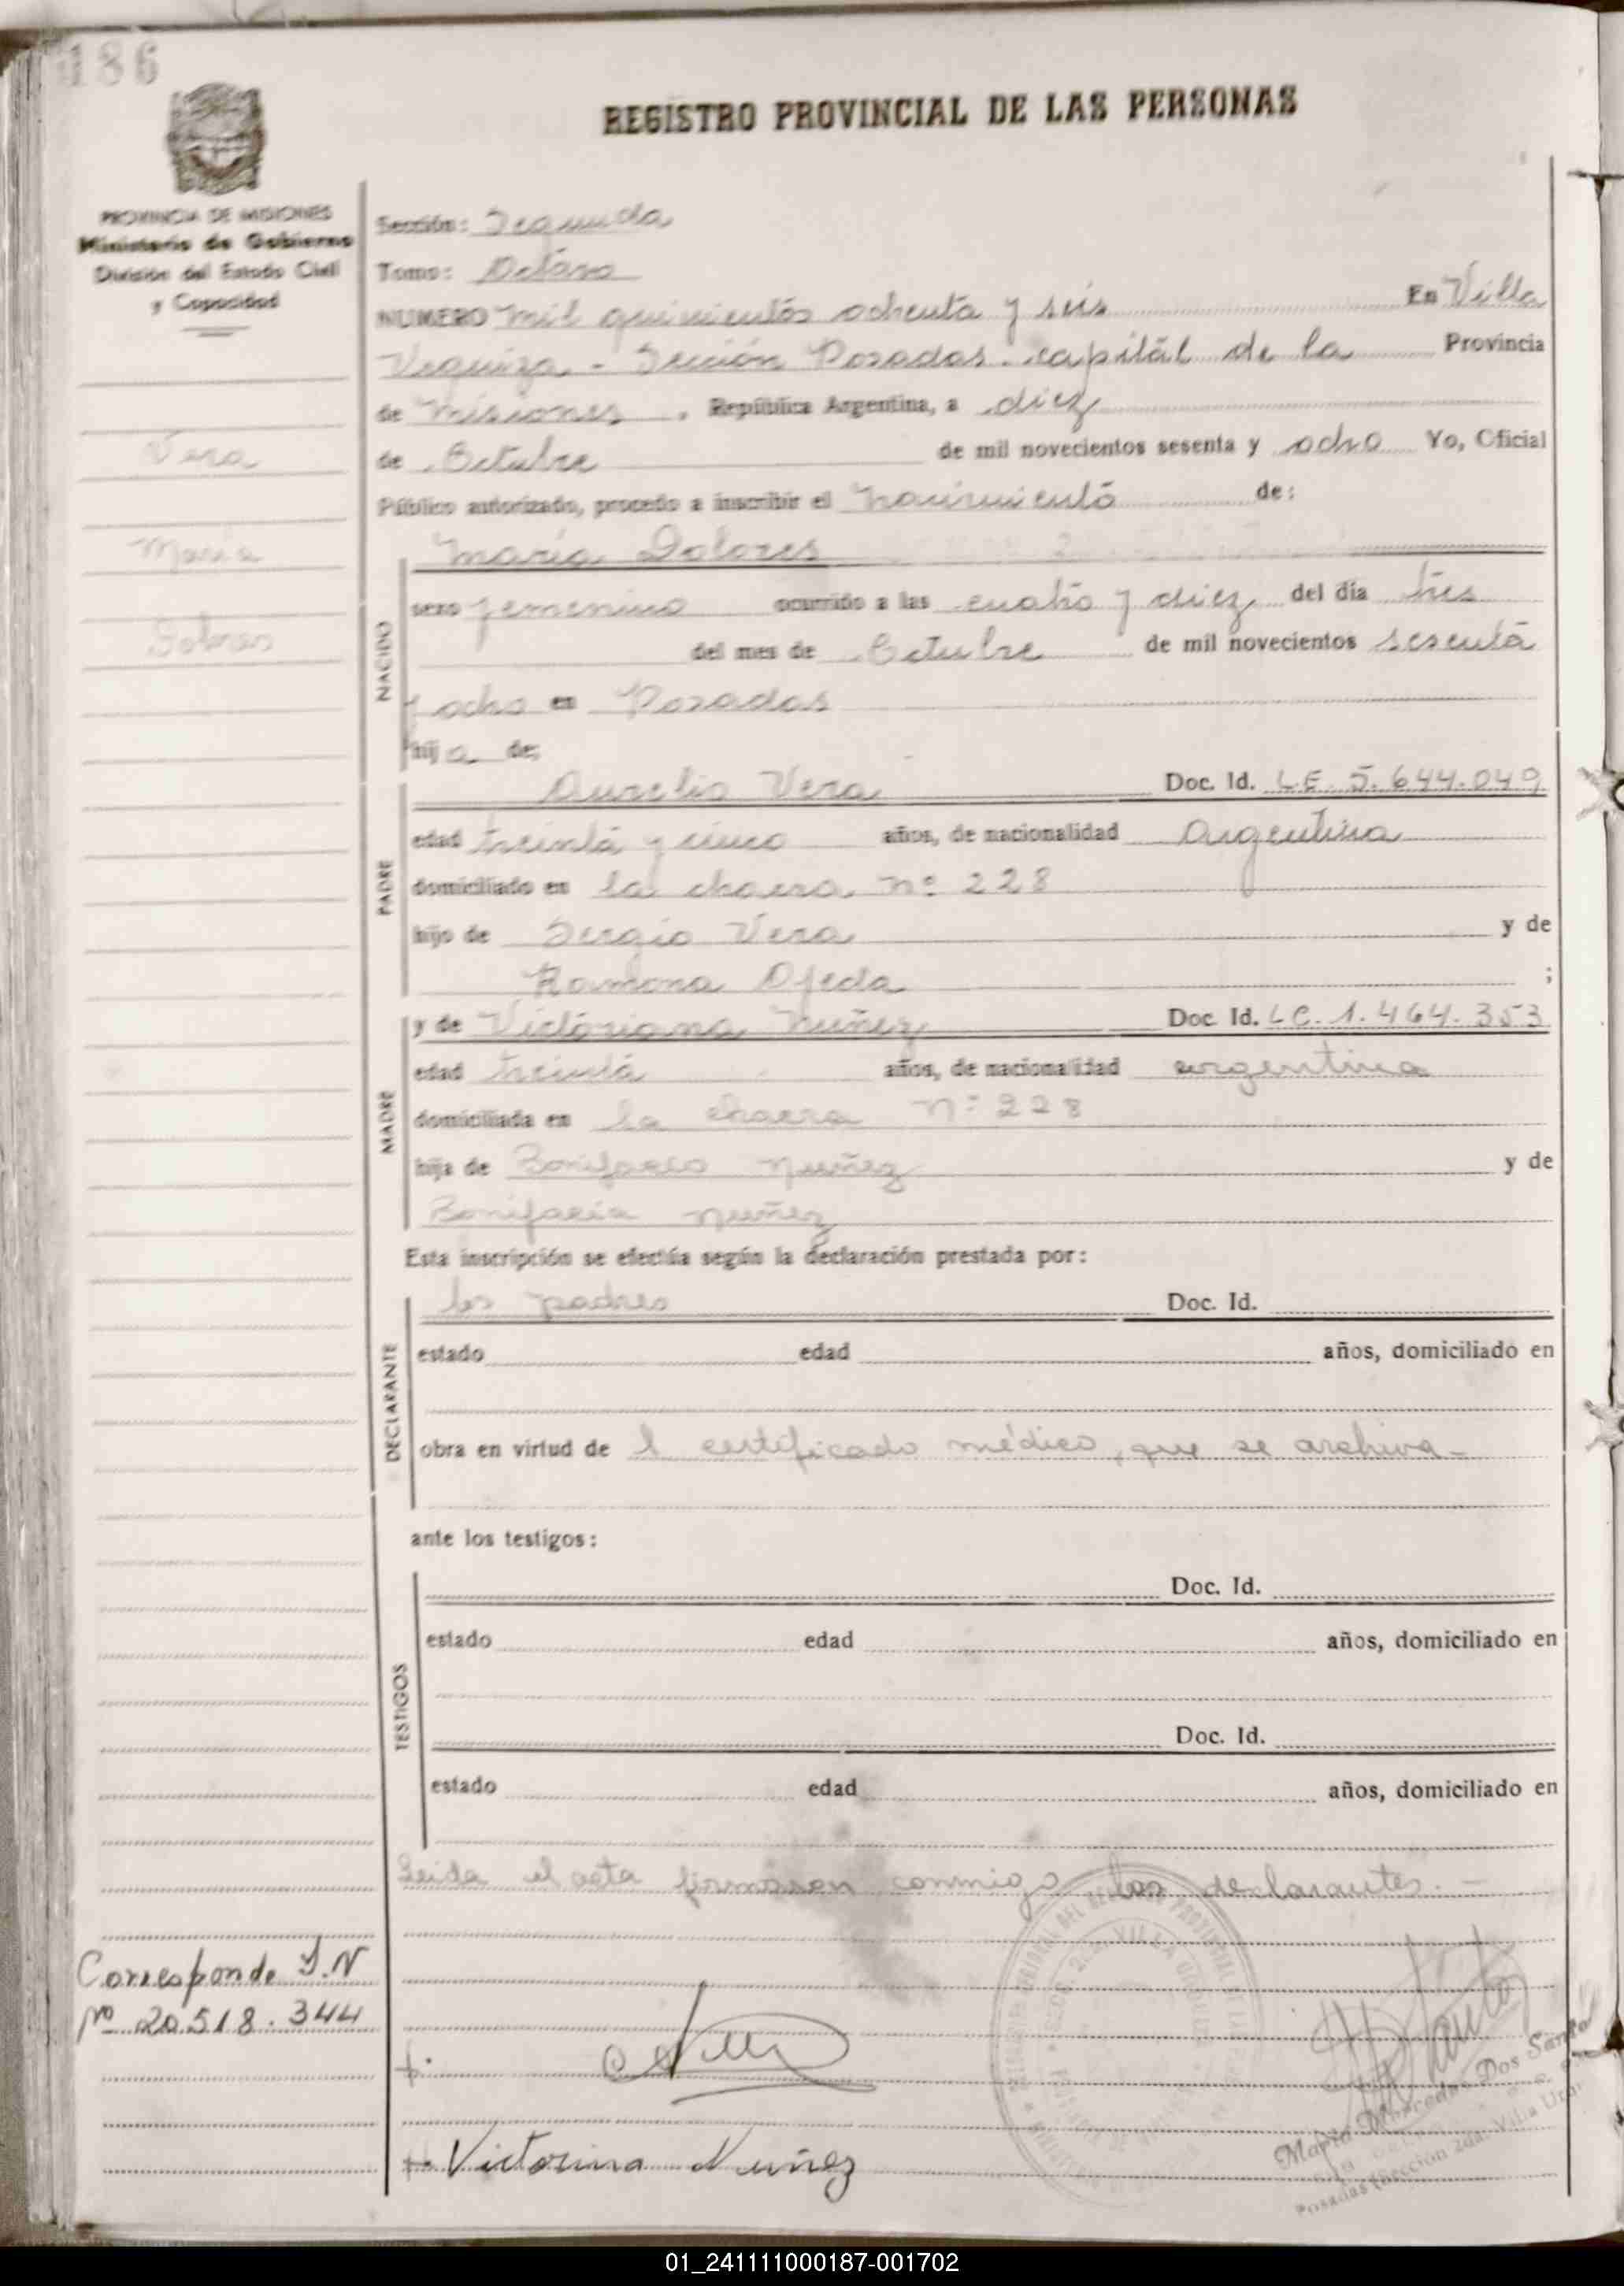 186
REGISTRO PROVINCIAL DE LAS PERSONAS
PROVINCIA DE MISIONES
Ministerio de Gobierno
División del Estado Civil
y Capacidad
Sección: Segunda
Tomo: Octavo
NUMERO mil quinientos ochenta y seis En Villa
Urquiza - Sección Posadas - capital de la Provincia
de Misiones, República Argentina, a diez
de Octubre de mil novecientos sesenta y ocho Yo, Oficial
Público autorizado, procedo a inscribir el nacimiento de:
Vera
María
Dolores
NACIDO
María Dolores
sexo femenino ocurrido a las cuatro y diez del día tres
del mes de Octubre de mil novecientos sesenta
y ocho en Posadas
hija de;
PADRE
Aurelio Vera Doc. Id. LE. 5.644.049
edad treinta y cinco años, de nacionalidad Argentina
domiciliado en la chacra nº 228
hijo de Sergio Vera y de
Ramona Ojeda ;
MADRE
y de Victoriana Nuñez Doc. Id. LC. 1.464.353
edad treinta años, de nacionalidad argentina
domiciliada en la chacra nº 228
hija de Bonifacio Nuñez y de
Bonifacia Nuñez
Esta inscripción se efectúa según la declaración prestada por:
DECLARANTE
los padres Doc. Id.
estado edad años, domiciliado en
obra en virtud de l certificado médico, que se archiva-
ante los testigos:
TESTIGOS
Doc. Id.
estado edad años, domiciliado en
Doc. Id.
estado edad años, domiciliado en
Leida el acta firmaron conmigo los declarantes. -
Corresponde I.N
Nº 20.518.344
Victorina Nuñez
Dos Santos
Posadas Sección 2da. Villa
01_241111000187-001702